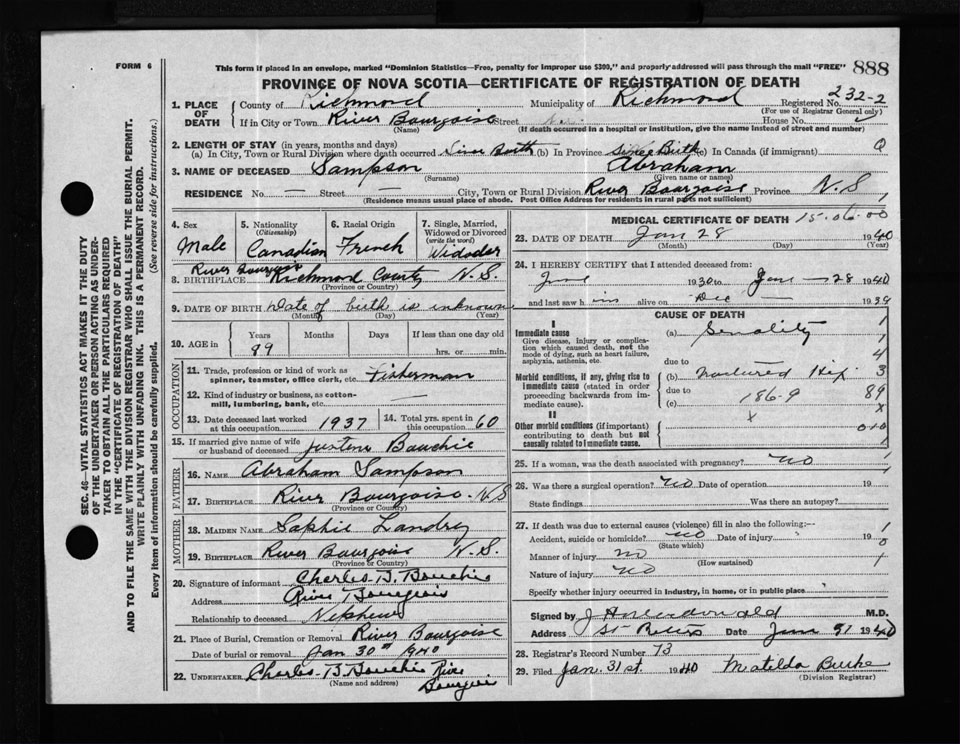 FORM 6
This form if placed in an envelope, marked "Dominion Statistics—Free, penalty for improper use $300," and properly addressed will pass through the mail "FREE"
888
PROVINCE OF NOVA SCOTIA—CERTIFICATE OF REGISTRATION OF DEATH
232-2
1. PLACE OF DEATH County of Richmond Municipality of Richmond Registered No.
(For use of Registrar General only)
If in City or Town River Bourgoise Street House No.
(Name) (If death occurred in a hospital or institution, give the name instead of street and number)
2. LENGTH OF STAY (in years, months and days)
(a) In City, Town or Rural Division where death occurred Since Birth (b) In Province Since Birth (c) In Canada (if immigrant)
3. NAME OF DECEASED Sampson Abraham
(Surname) (Given name or names)
RESIDENCE No. — Street — City, Town or Rural Division River Bourgoise Province N.S
(Residence means usual place of abode. Post Office Address for residents in rural parts not sufficient)
4. Sex Male
5. Nationality (Citizenship) Canadian
6. Racial Origin French
7. Single, Married, Widowed or Divorced (write the word) Widoder
8. BIRTHPLACE River Bourgoise Richmond County N.S.
(Province or Country)
9. DATE OF BIRTH Date of birth is unknown
(Month) (Day) (Year)
10. AGE in Years Months Days If less than one day old
89 hrs. or min.
OCCUPATION
11. Trade, profession or kind of work as spinner, teamster, office clerk, etc. Fisherman
12. Kind of industry or business, as cotton-mill, lumbering, bank, etc. —
13. Date deceased last worked at this occupation 1937
14. Total yrs. spent in this occupation 60
15. If married give name of wife or husband of deceased Justine Bouchie
FATHER
16. NAME Abraham Sampson
17. BIRTHPLACE River Bourgoise - N.S
(Province or Country)
MOTHER
18. MAIDEN NAME Sophie Landry
19. BIRTHPLACE River Bourgoise N.S.
(Province or Country)
20. Signature of informant Charles B. Bouchie
Address River Bourgeois
Relationship to deceased Nephew
21. Place of Burial, Cremation or Removal River Bourgoise
Date of burial or removal Jan 30th 1940
22. UNDERTAKER Charles B. Bouchie River Bourgeois
(Name and address)
MEDICAL CERTIFICATE OF DEATH 15.06.00
23. DATE OF DEATH Jan 28 1940
(Month) (Day) (Year)
24. I HEREBY CERTIFY that I attended deceased from:
June 1930 to Jan 28 1940
and last saw him alive on Dec — 1939
CAUSE OF DEATH
I
Immediate cause (a) Senality
Give disease, injury or complication which caused death, not the mode of dying, such as heart failure, asphyxia, asthenia, etc.
due to
Morbid conditions, if any, giving rise to immediate cause (stated in order proceeding backwards from immediate cause).
(b) Hip
due to 186.9
(c)
x
II
Other morbid conditions (if important) contributing to death but not causally related to immediate cause.
1
4
3
89
x
25. If a woman, was the death associated with pregnancy? No
26. Was there a surgical operation? No Date of operation 19
State findings Was there an autopsy?
27. If death was due to external causes (violence) fill in also the following:—
Accident, suicide or homicide? no Date of injury 19
(State which)
Manner of injury no
(How sustained)
Nature of injury no
Specify whether injury occurred in industry, in home, or in public place
Signed by M.D.
Address St Peters Date 1940
28. Registrar's Record Number 73
29. Filed Jan. 31st. 1940 Matilda Burke
(Division Registrar)
SEC. 46—VITAL STATISTICS ACT MAKES IT THE DUTY
OF THE UNDERTAKER OR PERSON ACTING AS UNDER-
TAKER TO OBTAIN ALL THE PARTICULARS REQUIRED
IN THE "CERTIFICATE OF REGISTRATION OF DEATH"
AND TO FILE THE SAME WITH THE DIVISION REGISTRAR WHO SHALL ISSUE THE BURIAL PERMIT.
WRITE PLAINLY WITH UNFADING INK. THIS IS A PERMANENT RECORD.
Every item of information should be carefully supplied. (See reverse side for instructions.)